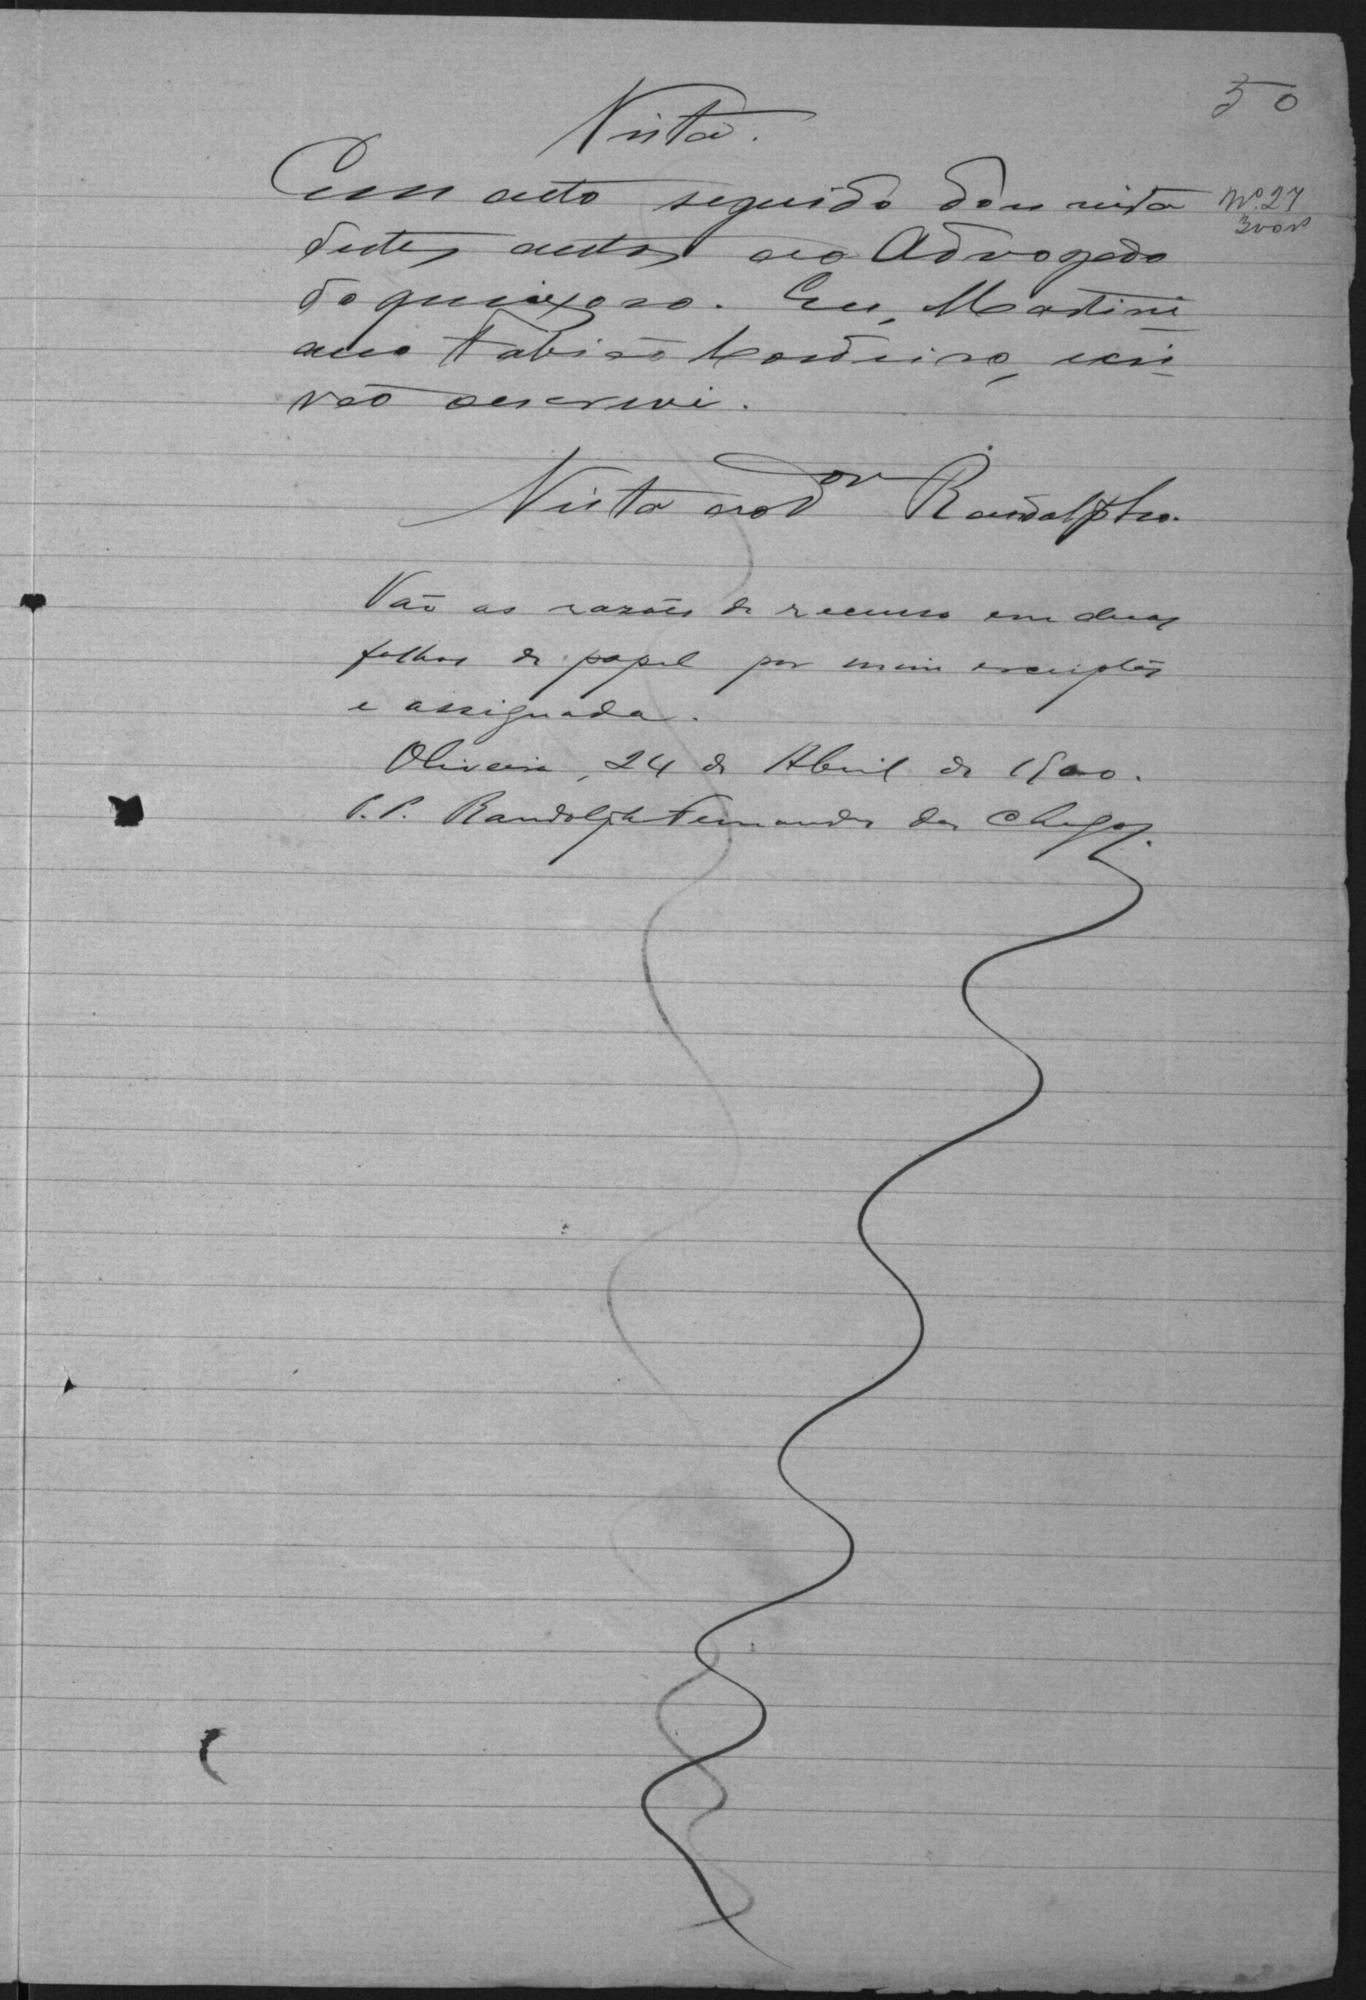 50
Vista.
Em acto seguido dou vista
Nº 27
destes autos ao Advogado
do queixoso. Eu, Martini
ano Fabião Cordeiro, escri-
vão escrevi.
Vista ao Dor Randolpho.
Vão as razões de recurso em duas
folhas de papel por mim escriptas
e assignada.
Oliveira, 24 de Abril de 1900.
P.P. Randolpho Fernandes das Chagas.